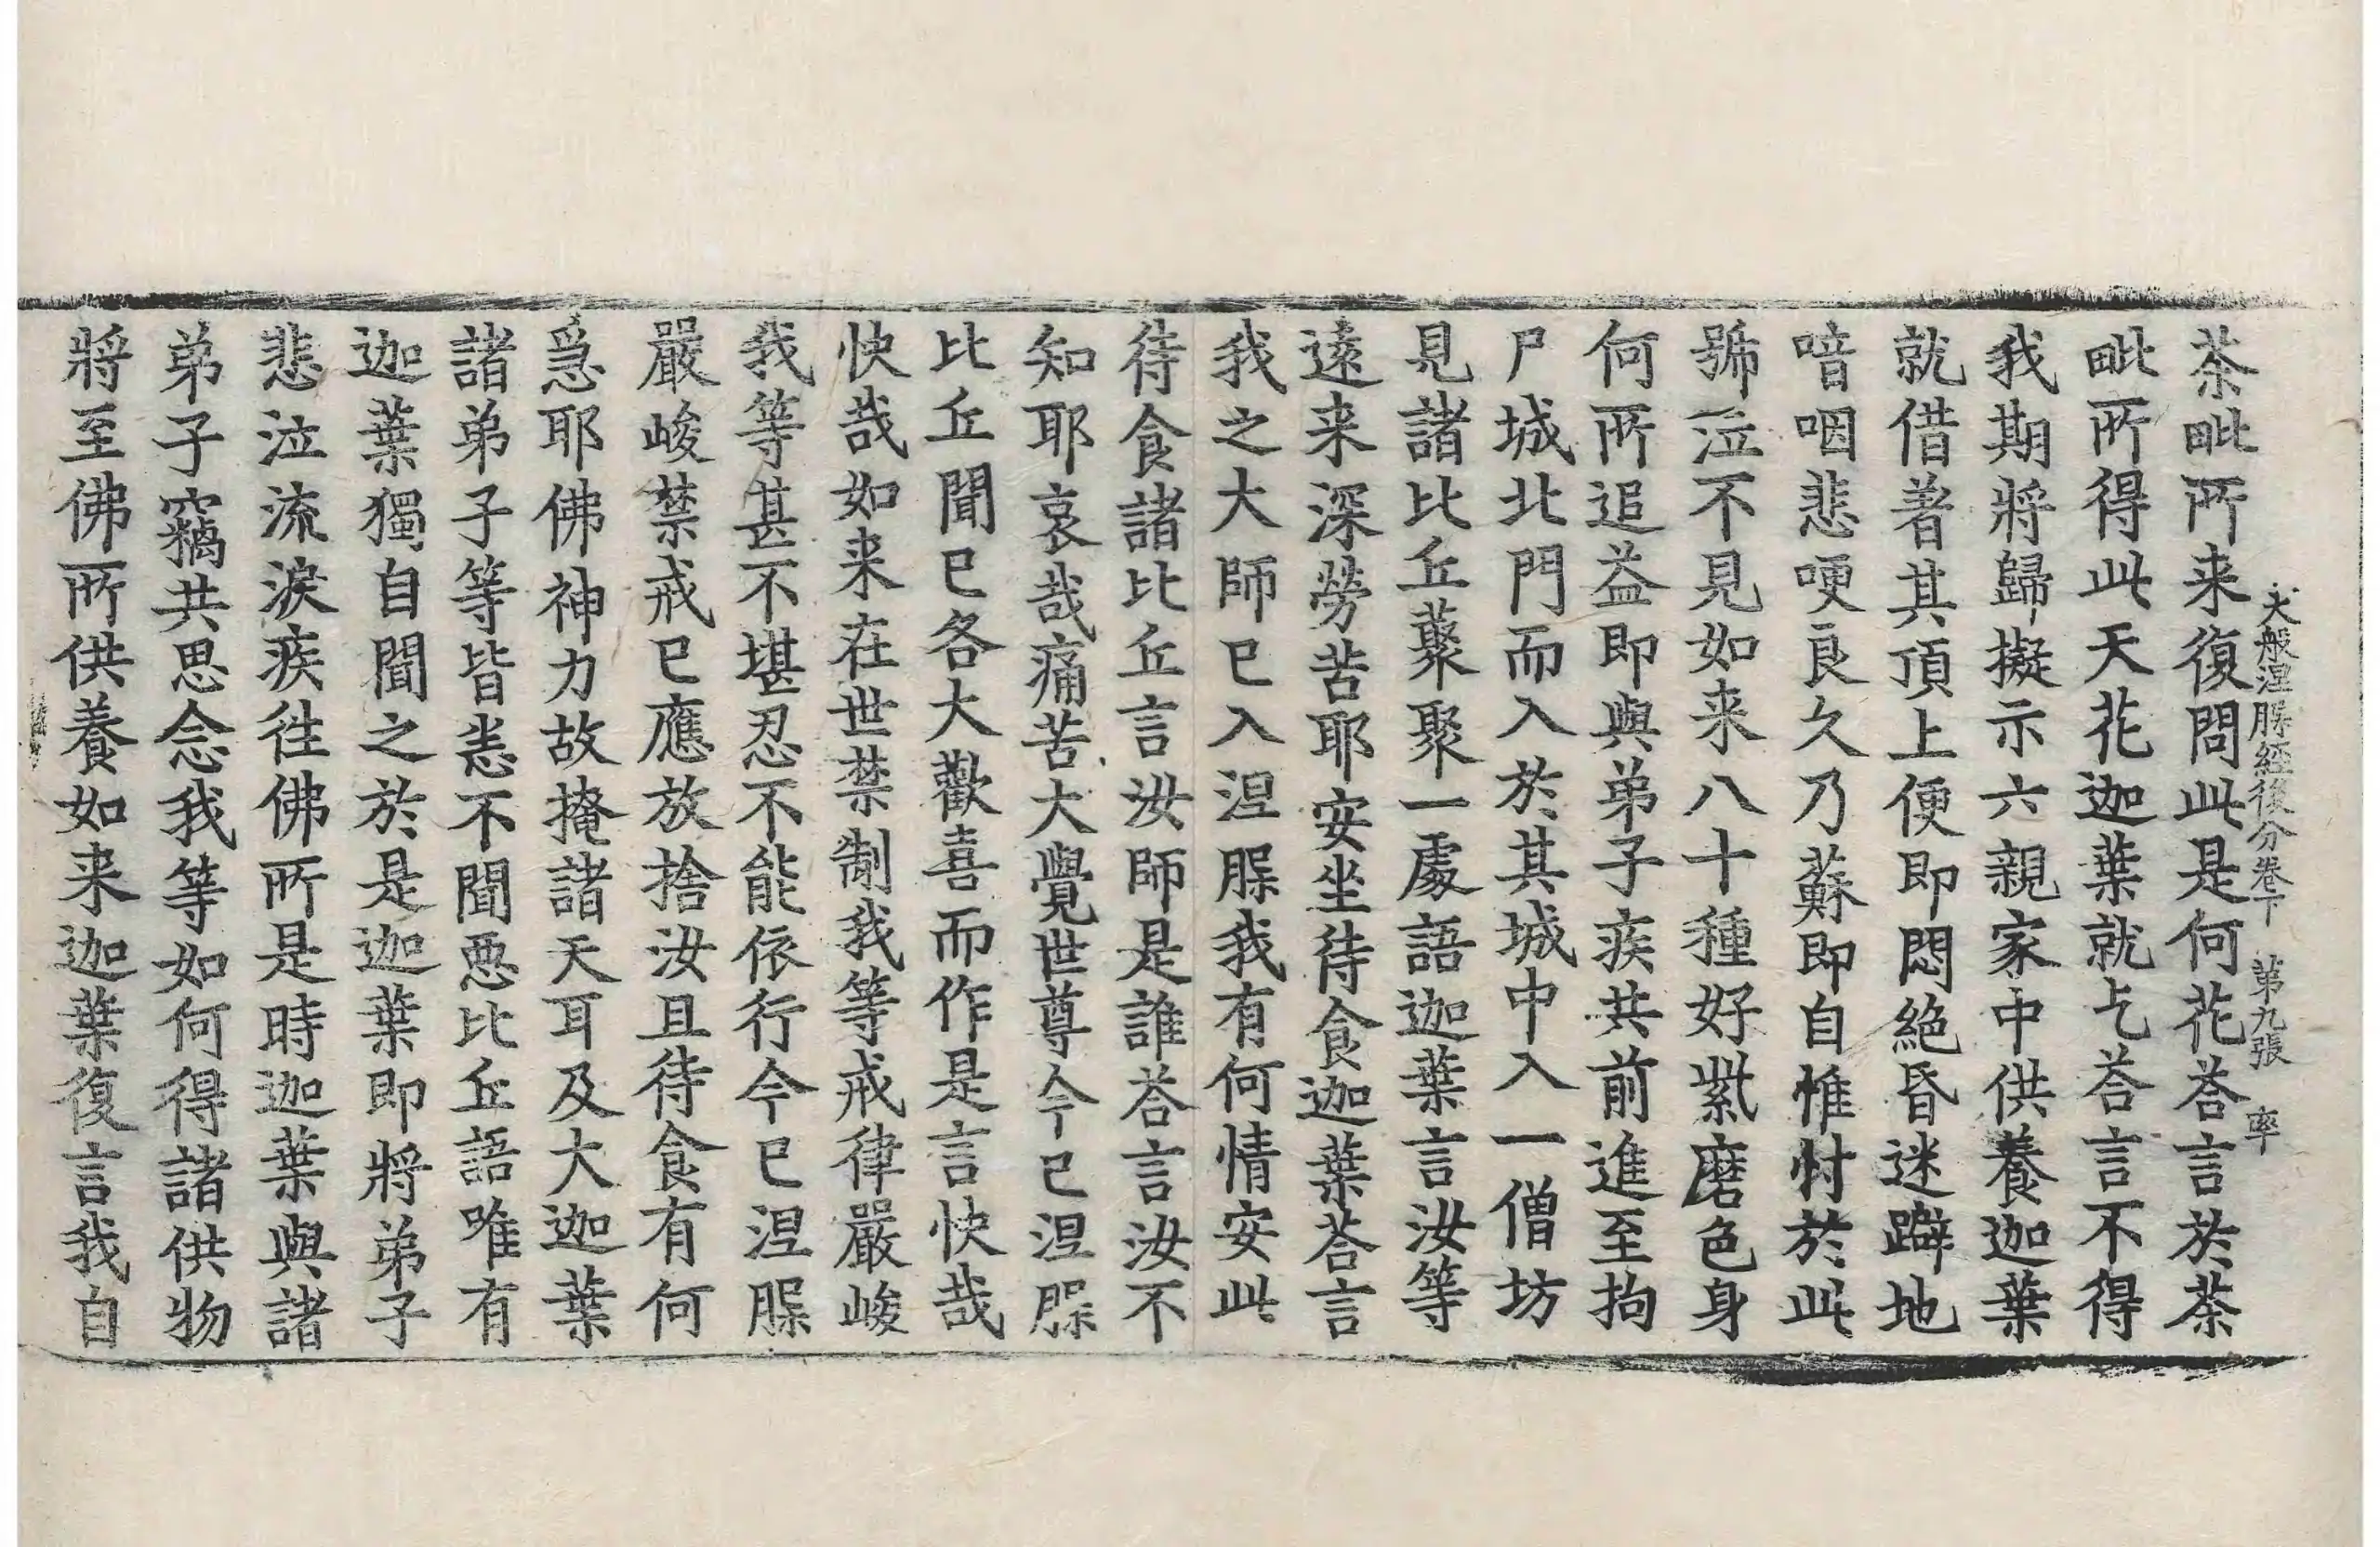 大般涅脲経後分卷下 第九張 率
茶毗所来復問此是何花荅言於茶
毗所得此天花迦葉就乞荅言不得
我期將歸擬示六親家中供養迦葉
就借著其頂上便即悶絶昏迷躃地
喑咽悲哽良久乃蘇即自惟忖於此
號泣不見如来八十種好紫磨色身
何所追益即與弟子疾共前進至拘
尸城北門而入於其城中入一僧坊
見諸比丘藂聚一處語迦葉言汝等
遠来深勞苦耶安坐待食迦葉荅言
我之大師已入涅脲我有何情安此
待食諸比丘言汝師是誰荅言汝不
知耶哀哉痛苦大覺世尊今已涅脲
比丘聞已各大歡喜而作是言快哉
快哉如来在世禁制我等戒律嚴峻
我等甚不堪忍不能依行今已涅脲
嚴峻禁戒已應放捨汝且待食有何
急耶佛神力故掩諸天耳及大迦葉
諸弟子等皆悉不聞惡比丘語唯有
迦葉獨自聞之於是迦葉即將弟子
悲泣流淚疾往佛所是時迦葉與諸
弟子竊共思念我等如何得諸供物
將至佛所供養如来迦葉復言我自